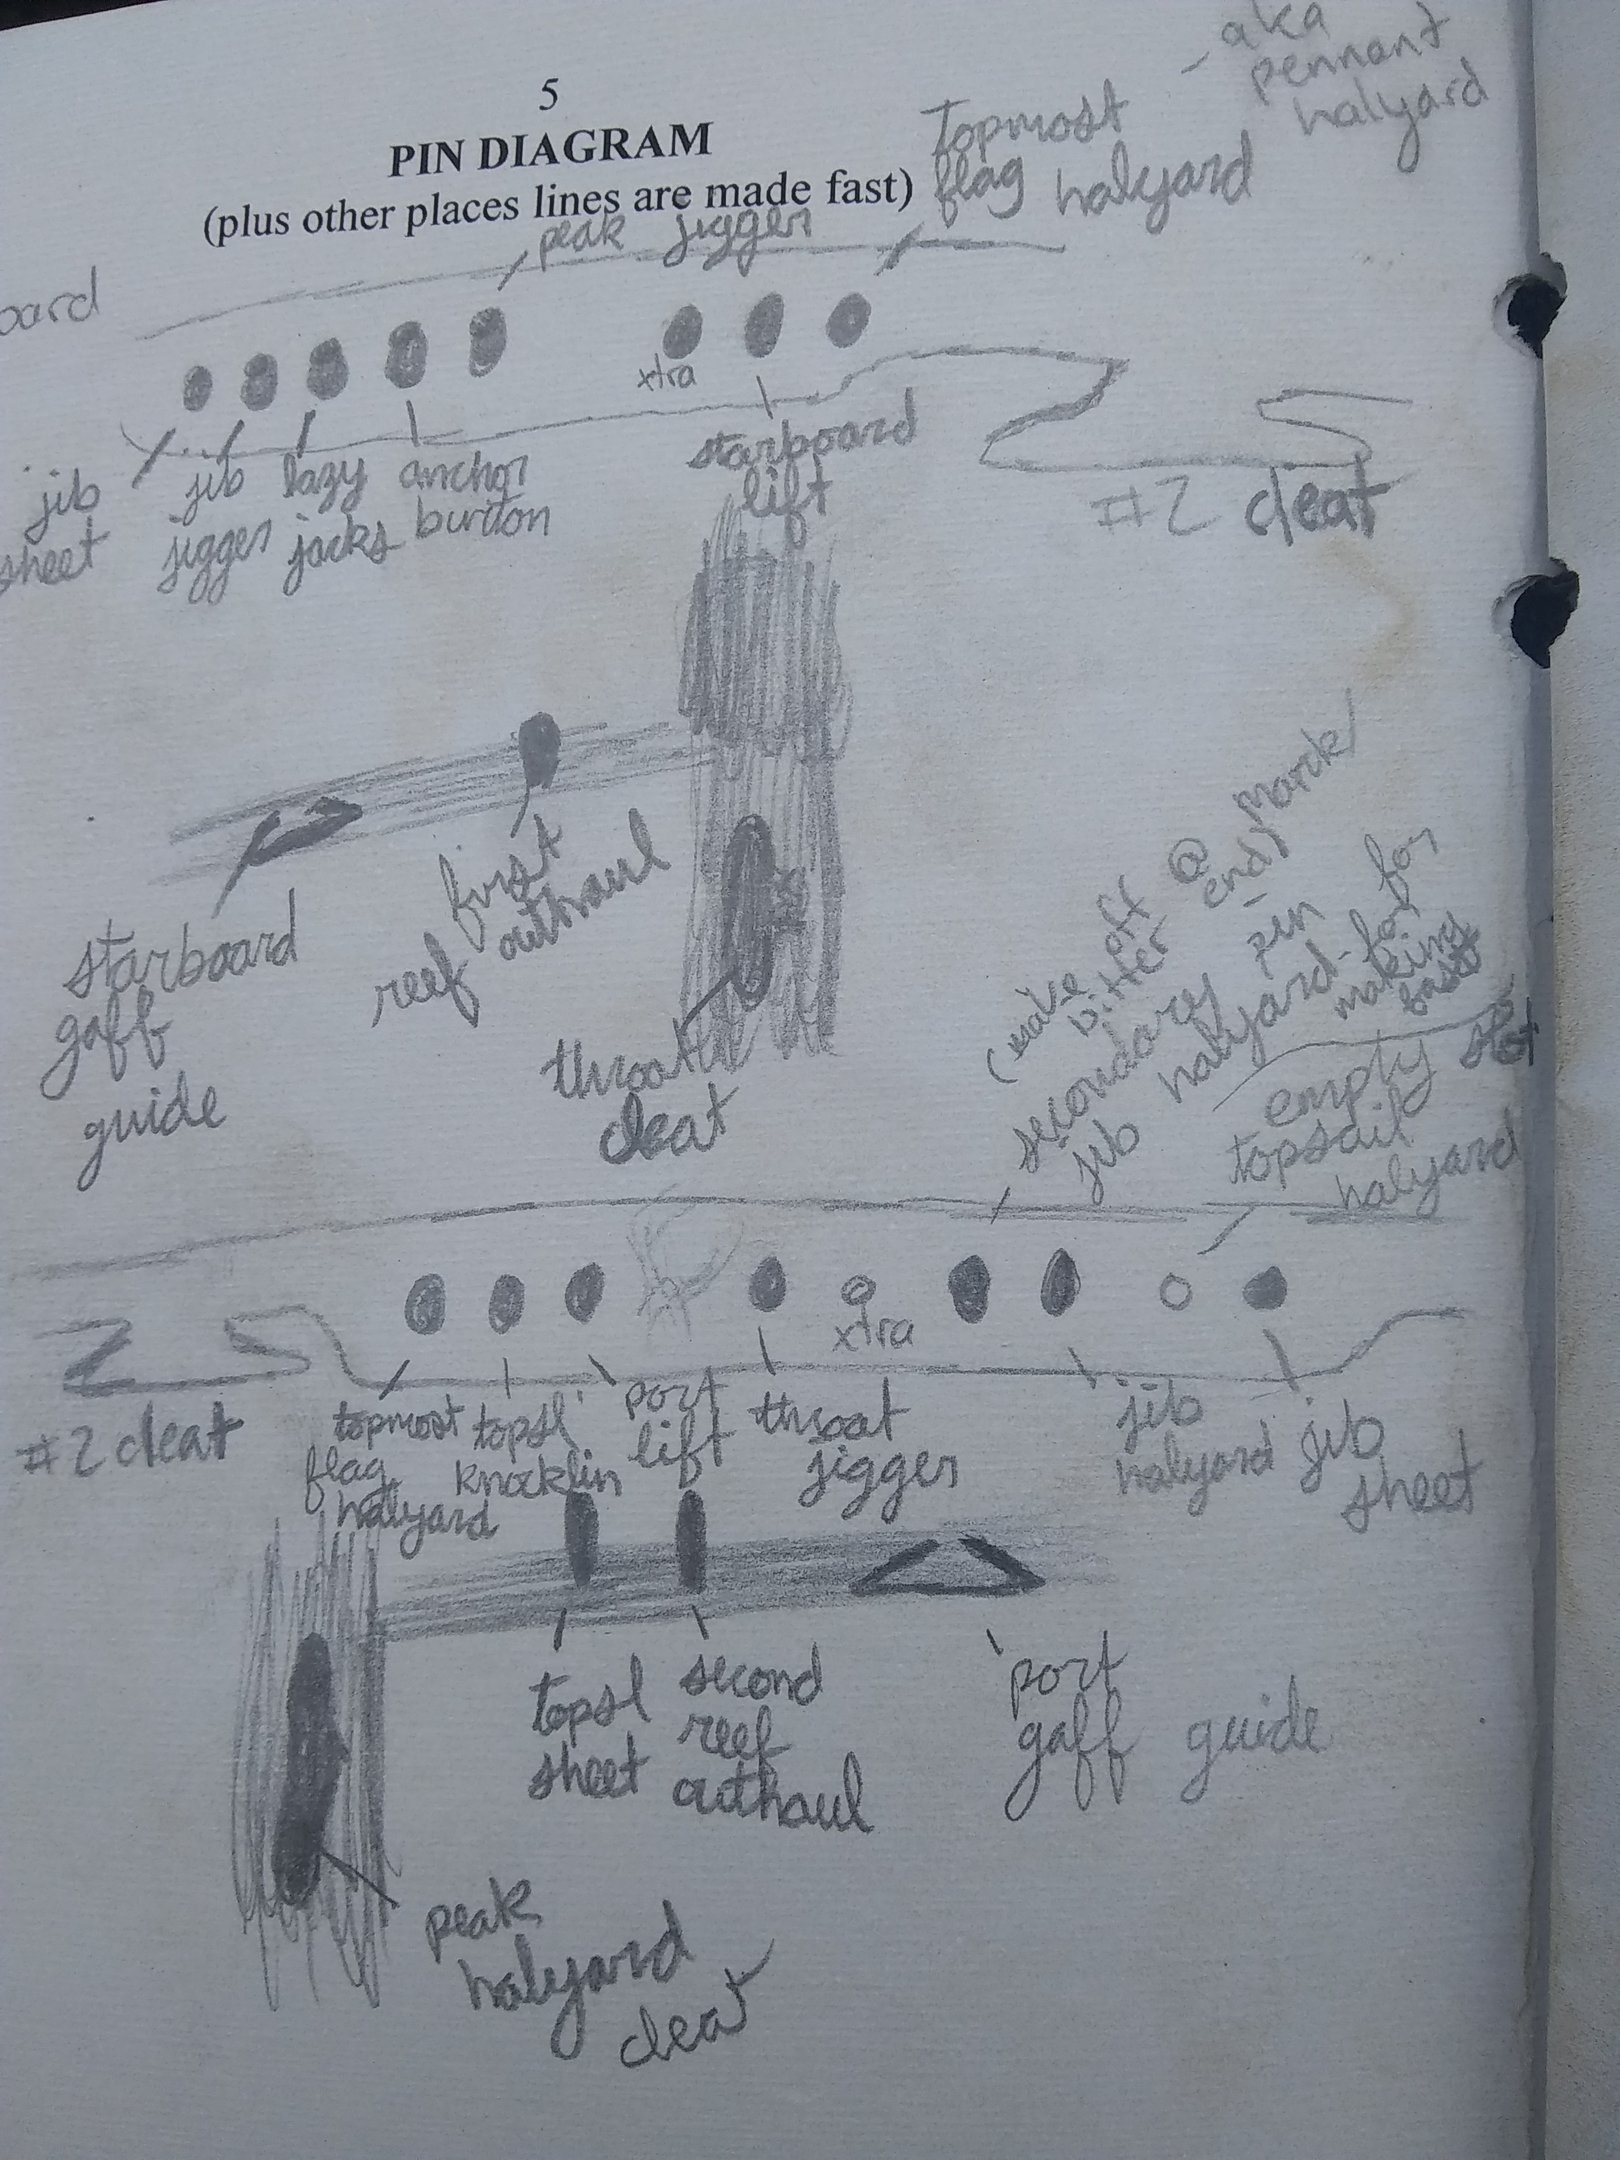 5
PIN DIAGRAM
(plus other places lines are made fast)
aka
pennant
halyard
topmost
flag halyard
peak jigger
oard
xtra
jib
sheet
jib
jigger
lazy
jacks
anchor
burton
starboard
lift
#2 cleat
first
reef outhaul
starboard
gaff
guide
throat
cleat
(make off @ mark/
bitter end)
secondary pin
jib halyard - for
making
fast
empty slot
topsail
halyard
xtra
#2 cleat
topmost
flag
halyard
topsl
knocklin
port
lift
throat
jigger
jib
halyard
jib
sheet
topsl
sheet
second
reef
outhaul
port
gaff guide
peak
halyard
cleat